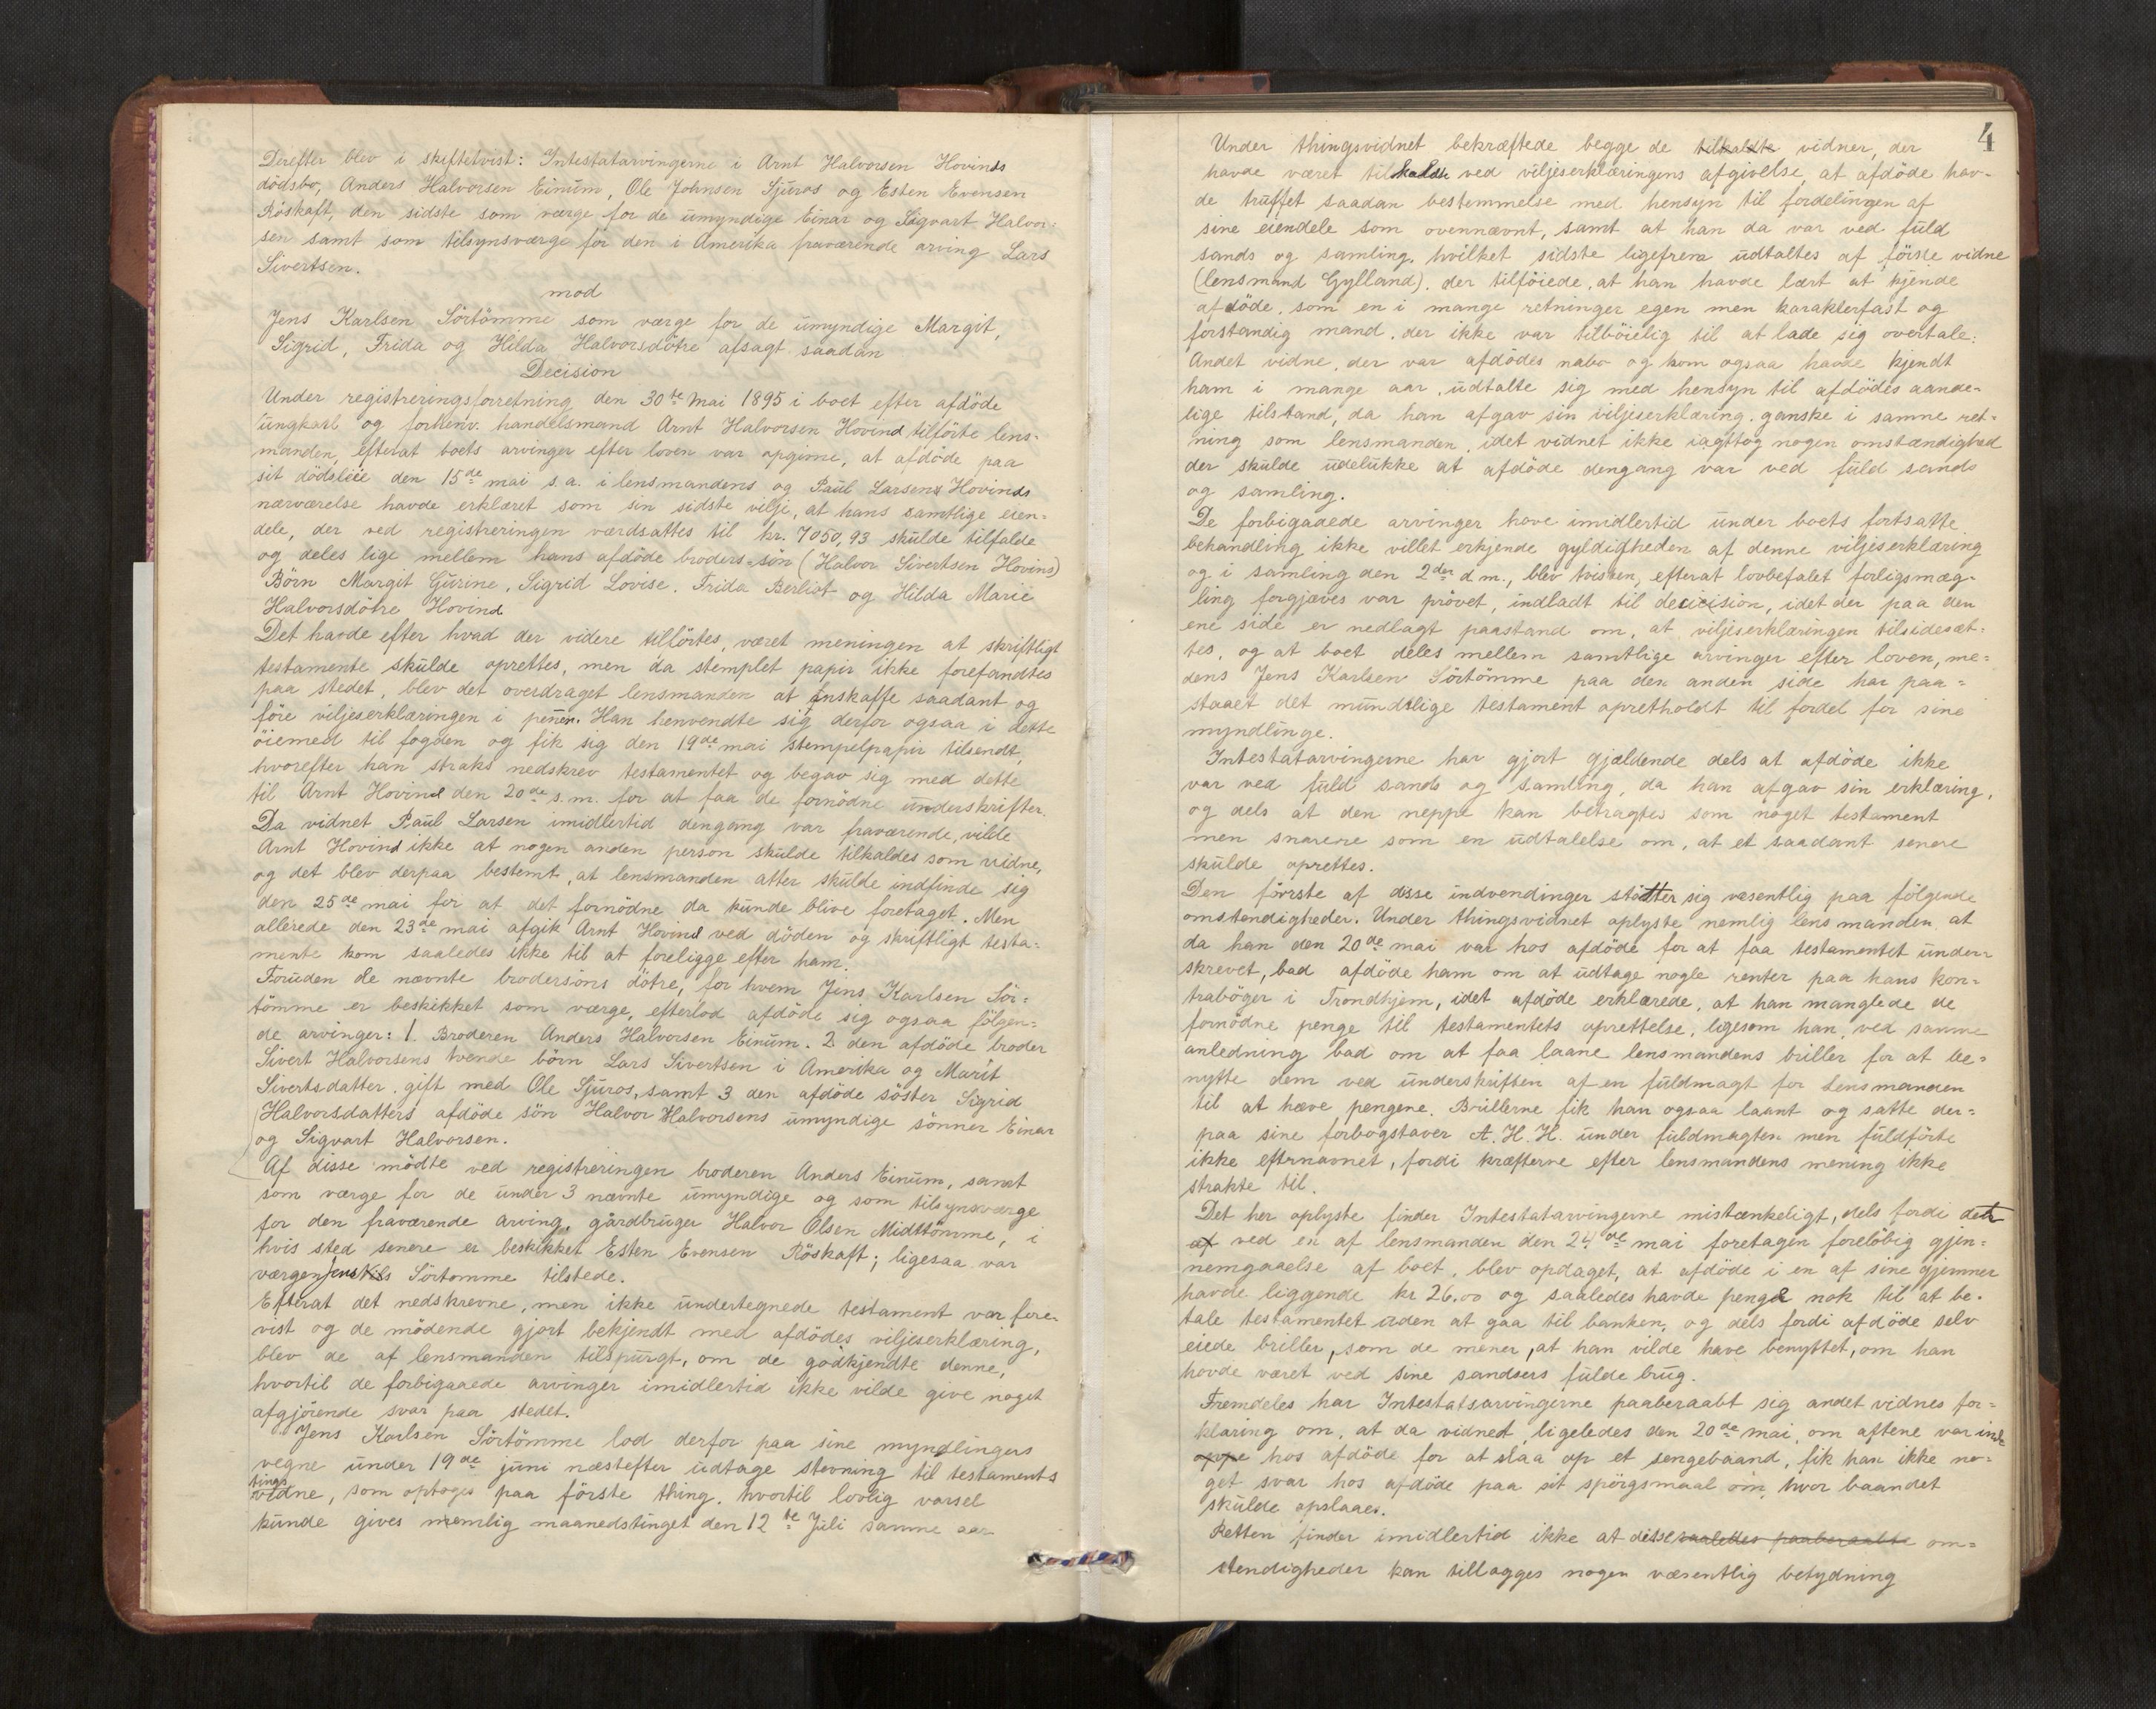 Derefter blev i skiftetvist: Intestatarvingerne i Arnt Halvorsen Hovinds
dödsbo, Anders Halvorsen Einum, Ole Johnsen Sjuros og Esten Evensen
Röskaft, den sidste som værge for de umyndige Einar og Sigvart Halvor-
sen samt som tilsynsværge for den i Amerika fraværende arving Lars
Sivertsen.
mod
Jens Karlsen Sörtömme som værge for de umyndige Margit,
Sigrid, Frida og Hilda Halvorsdötre afsagt saadan
Decision
Under registreringsforretning den 30te mai 1895 i boet efter afdöde
ungkarl og forhenv. handelsmand Arnt Halvorsen Hovind tilförte lens-
manden, efterat boets arvinger efter loven var opgivne, at afdöde paa
sit dödsleie den 15de mai s.a. i lensmandens og Paul Larsens Hovinds
nærværelse havde erklæret som sin sidste vilje, at hans samtlige eien-
dele, der ved registreringen værdsattes til kr. 7050,93 skulde tilfalde
og deles lige mellem hans afdöde broders-sön (Halvor Sivertsen Hovins)
Börn Margit Gurine, Sigrid Lovise. Frida Berliot og Hilda Marie
Halvorsdötre Hovind
Det havde efter hvad der videre tilförtes, været meningen at skriftligt
testamente skulde oprettes, men da stemplet papir ikke forefandtes
paa stedet, blev det overdraget lensmanden at anskaffe saadant og
före viljeserklæringen i pennen. Han henvendte sig derfor ogsaa i dette
öiemed til fogden og fik sig den 19de mai stempelpapir tilsendt,
hvorefter han straks nedskrev testamentet og begav sig med dette
til Arnt Hovind den 20de s.m. for at faa de fornödne underskrifter.
Da vidnet Paul Larsen imidlertid dengang var fraværende, vilde
Arnt Hovind ikke at nogen anden person skulde tilkaldes som vidne,
og det blev derpaa bestemt, at lensmanden atter skulde indfinde sig
den 25de mai for at det fornödne da kunde blive foretaget. Men
allerede den 23de mai afgik Arnt Hovind ved döden og skriftligt testa-
mente kom saaledes ikke til at foreligge efter ham.
Foruden de nævnte brodersöns dötre, for hvem Jens Karlsen Sör-
tömme er beskikket som værge, efterlod afdöde sig ogsaa fölgen-
de arvinger: 1. Broderen Anders Halvorsen Einum. 2 den afdöde broder
Sivert Halvorsens tvende börn Lars Sivertsen i Amerika og Marit
Sivertsdatter, gift med Ole Sjuros, samt 3 den afdöde söster Sigrid
Halvorsdatters afdöde sön Halvor Halvorsens umyndige sönner Einar
og Sigvart Halvorsen.
Af disse mödte ved registreringen broderen Anders Einum, samt
som værge for de under 3 nævnte umyndige og som tilsynsværge
for den fraværende arving, gårdbruger Halvor Olsen Midttömme, i
hvis sted senere er beskikket Esten Evensen Röskaft; ligesaa var
værgen Jens Sörtomme tilstede.
Efterat det nedskrevne, men ikke undertegnede testament var fore-
vist og de mödende gjort bekjendt med afdödes viljeserklæring,
blev de af lensmanden tilspurgt, om de godkjendte denne,
hvortil de forbigaaede arvinger imidlertid ikke vilde give noget
afgjörende svar paa stedet.
Jens Karlsen Sörtömme lod derfor paa sine myndlingers
vegne under 19de juni næstefter udtage stevning til testaments
tings
vidne, som optoges paa förste thing. hvortil lovlig varsel
kunde gives nemlig maanedstinget den 12te Juli samme aar
4
Under thingsvidnet bekræftede begge de tilkaldte vidner, der
havde været tilkaldte ved viljeserklæringens afgivelse, at afdöde hav-
de truffet saadan bestemmelse med hensyn til fordelingen af
sine eiendele som ovennævnt, samt at han da var ved fuld
sands og samling. hvilket sidste ligefrem udtaltes af förste vidne
(lensmand Gylland). der tilföiede, at han havde lært at kjende
afdöde, som en i mange retninger egen men karakterfast og
forstandig mand, der ikke var tilböielig til at lade sig overtale.
Andet vidne, der var afdödes nabo og kom ogsaa havde kjendt
ham i mange aar, udtalte sig med hensyn til afdödes aande-
lige tilstand, da han afgav sin viljeserklæring, ganske i samme ret-
ning som lensmanden, idet vidnet ikke iagttog nogen omstændighed
der skulde udelukke at afdöde dengang var ved fuld sands
og samling.
De forbigaaede arvinger have imidlertid under boets fortsatte
behandling ikke villet erkjende gyldigheden af denne viljeserklæring
og i samling den 2den d.m., blev tvisten, efterat lovbefalet forligsmæg-
ling forgjæves var prövet, indladt til decicision, idet der paa den
ene side er nedlagt paastand om, at viljeserklæringen tilsidesæt-
tes, og at boet deles mellem samtlige arvinger efter loven, me-
dens Jens Karlsen Sörtömme paa den anden side har paa-
staaet det mundtlige testament opretholdt til fordel for sine
myndlinge.
Intestatarvingerne har gjort gjældende dels at afdöde ikke
var ved fuld sands og samling, da han afgav sin erklæring,
og dels at den neppe kan betragtes som noget testament
men snarere som en udtalelse om, at et saadant senere
skulde oprettes.
Den förste af disse indvendinger stötter sig væsentlig paa fölgende
omstendigheder. Under thingsvidnet oplyste nemlig lensmanden at
da han den 20de mai var hos afdöde for at faa testamentet under-
skrevet, bad afdöde ham om at udtage nogle renter paa hans kon-
traböger i Trondhjem, idet afdöde erklærede, at han manglede de
fornödne penge til testamentets oprettelse, ligesom han, ved samme
anledning bad om at faa laane lensmandens briller for at be-
nytte dem ved underskriften af en fuldmagt for Lensmanden
til at hæve pengene. Brillerne fik han ogsaa laant og satte der-
paa sine forbogstaver A. H. H. under fuldmagten men fuldförte
ikke efternavnet, fordi kræfterne efter lensmandens mening ikke
strakte til.
Det her oplyste finder Intestatarvingerne mistænkeligt, dels fordi det
af ved en af lensmanden den 24de mai foretagen forelöbig gjen-
nemgaaelse af boet, blev opdaget, at afdöde i en af sine gjemmer
havde liggende kr 26.00 og saaledes havde penge nok til at be-
tale testamentet uden at gaa til banken, og dels fordi afdöde selv
eiede briller, som de mener, at han vilde have benyttet, om han
havde været ved sine sandsers fulde brug.
Fremdeles har Intestatsarvingerne paaberaabt sig andet vidnes for-
klaring om, at da vidnet, ligeledes den 20de mai, om aftene var inde
hos afdöde for at slaa op et sengebaand, fik han ikke no-
get svar hos afdöde paa sit spörgsmaal om, hvor baandet
skulde opslaaes.
Retten finder imidlertid ikke at disse saaledes paaberaabte om-
stendigheder kan tillægges nogen væsentlig betydning